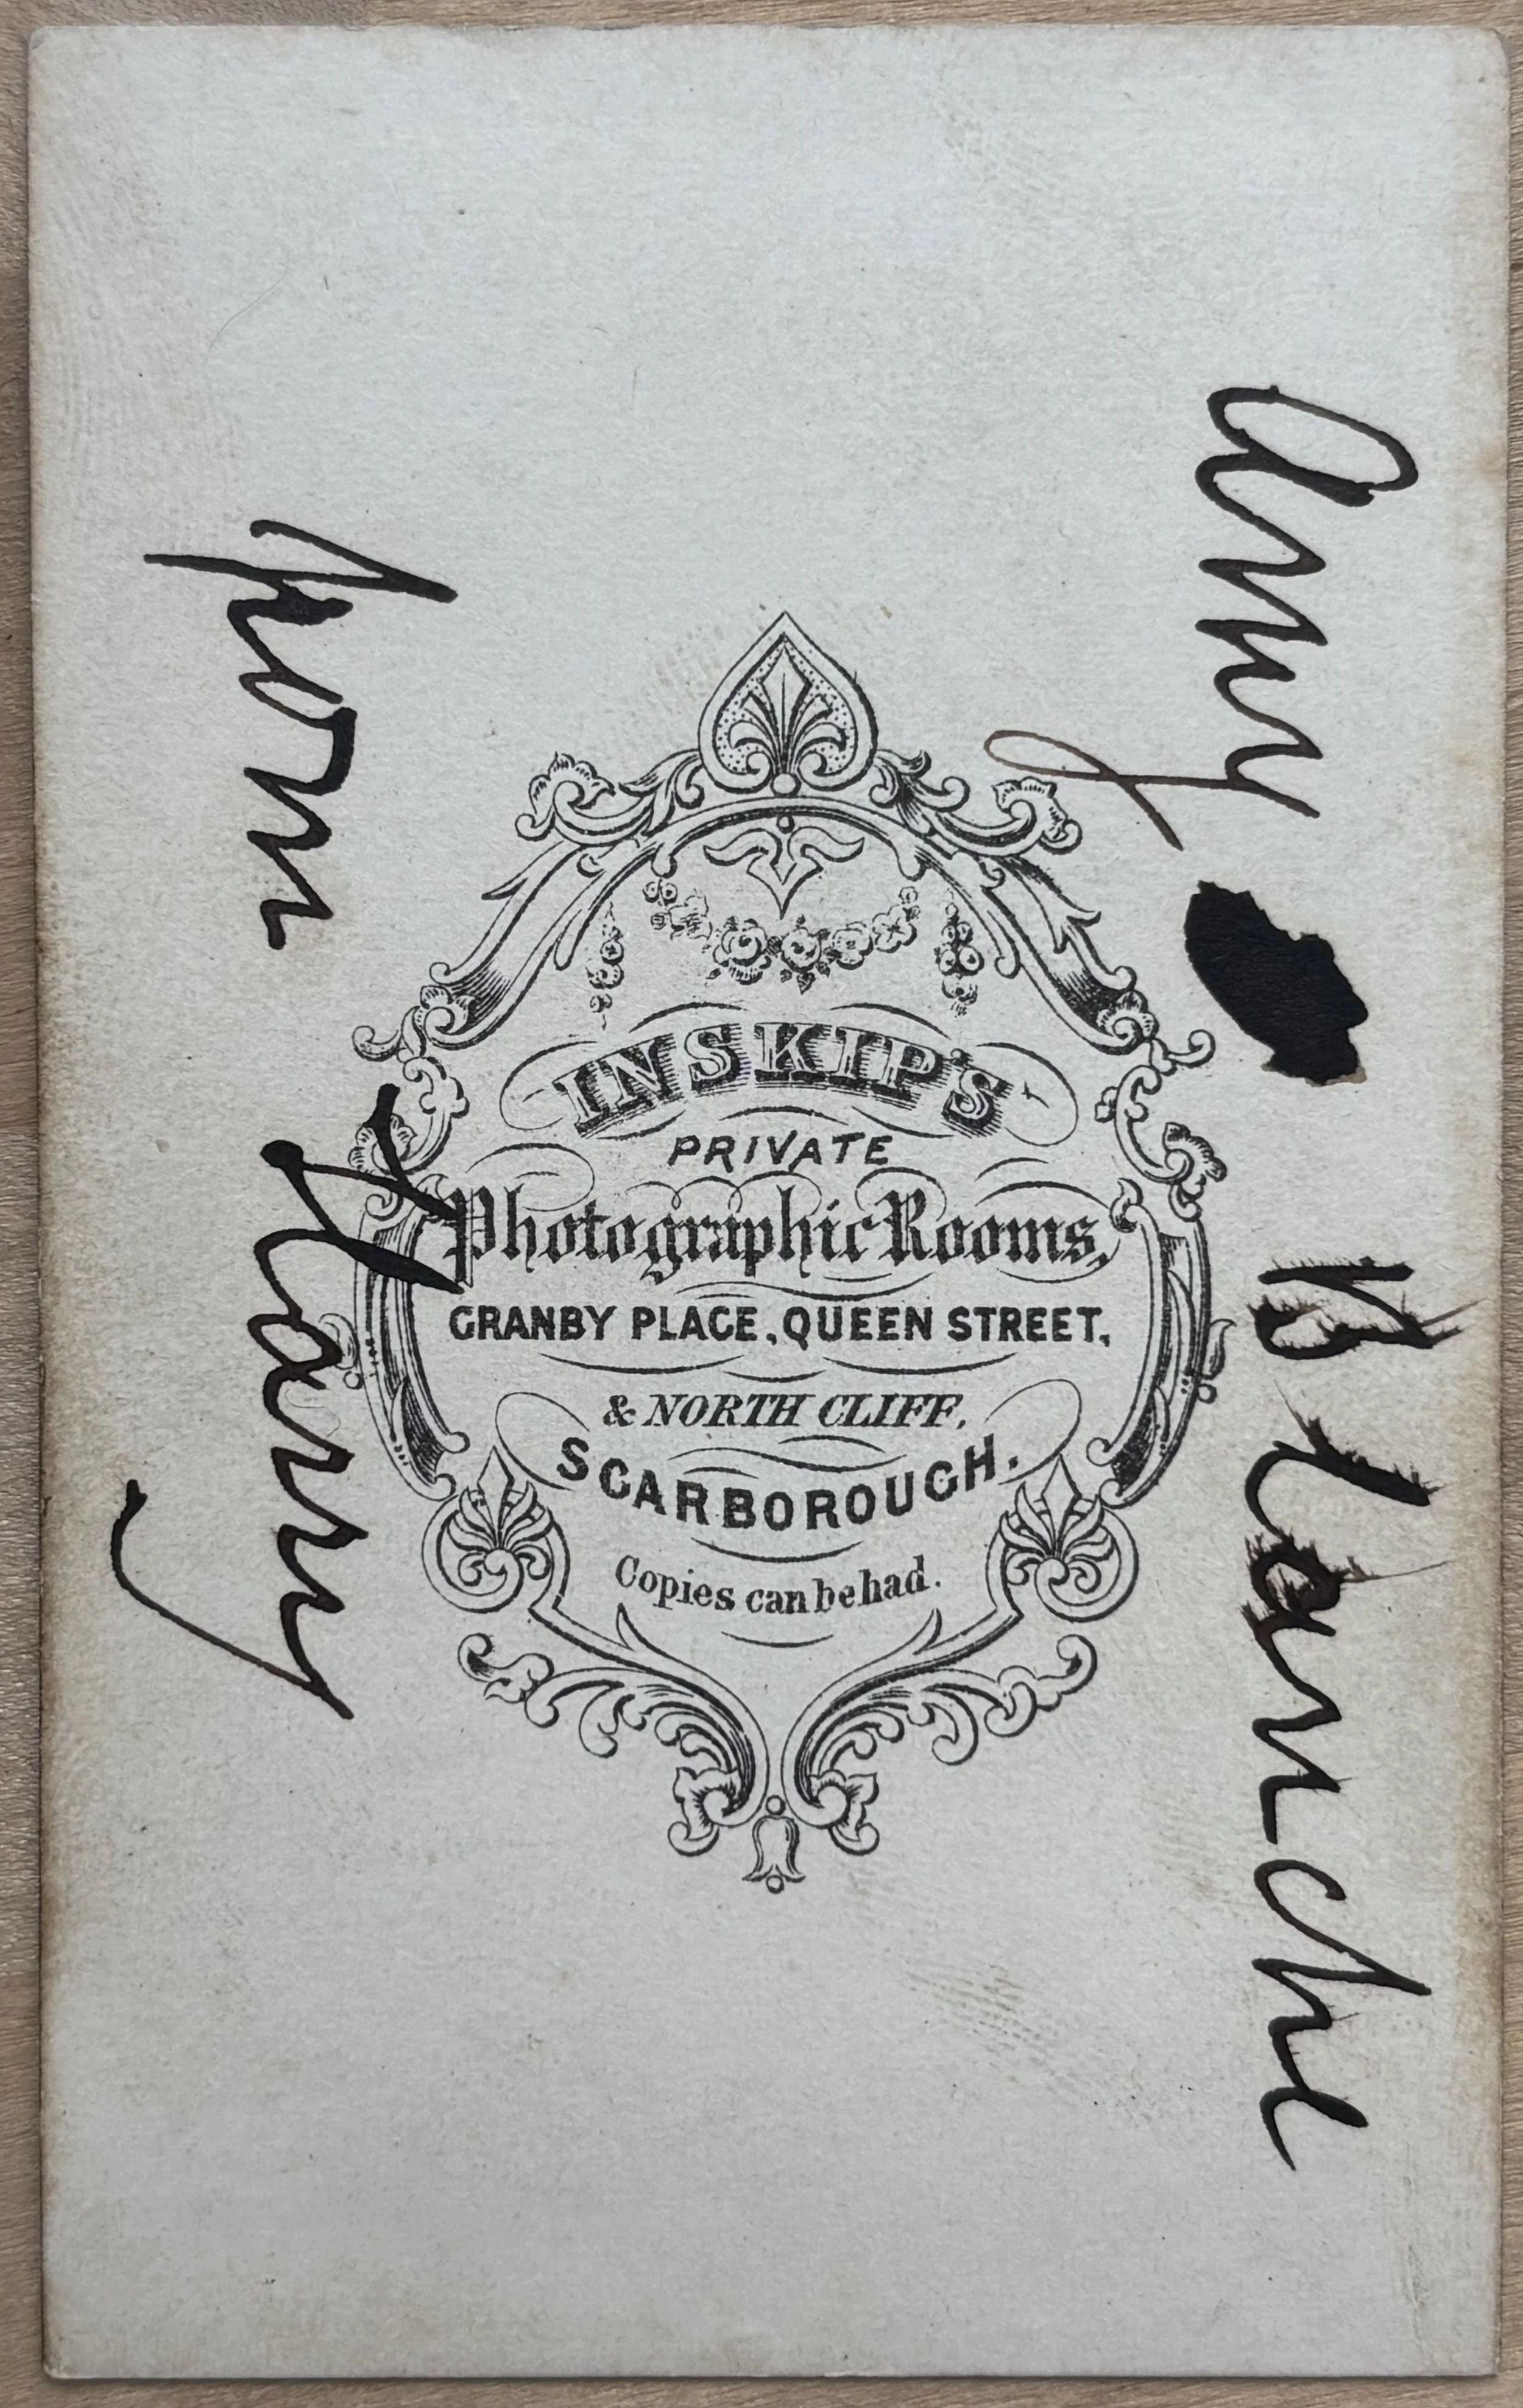 Amy Blanche
from Harry
INSKIP'S
PRIVATE
Photographic Rooms,
GRANBY PLACE, QUEEN STREET,
& NORTH CLIFF,
SCARBOROUGH.
Copies can be had.